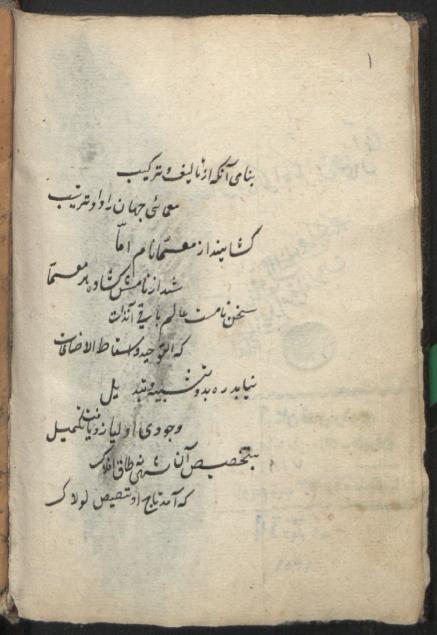 ۱
بنامی آنکه از تالیف و ترکیب
معمائی جهان را داد ترتیب
گشایند از معما نام اما
شد از نامش گشاده هر معما
سخن نامست عالم باقی آنذات
که التوحید اسقاط الاضافات
نیابد ره بدو تشبیه و تبدیل
وجودی اولیا زو یافت تکمیل
بتخصیص آن شهی نه طاق افلاک
که آمد تاج او تنصیص لولاک